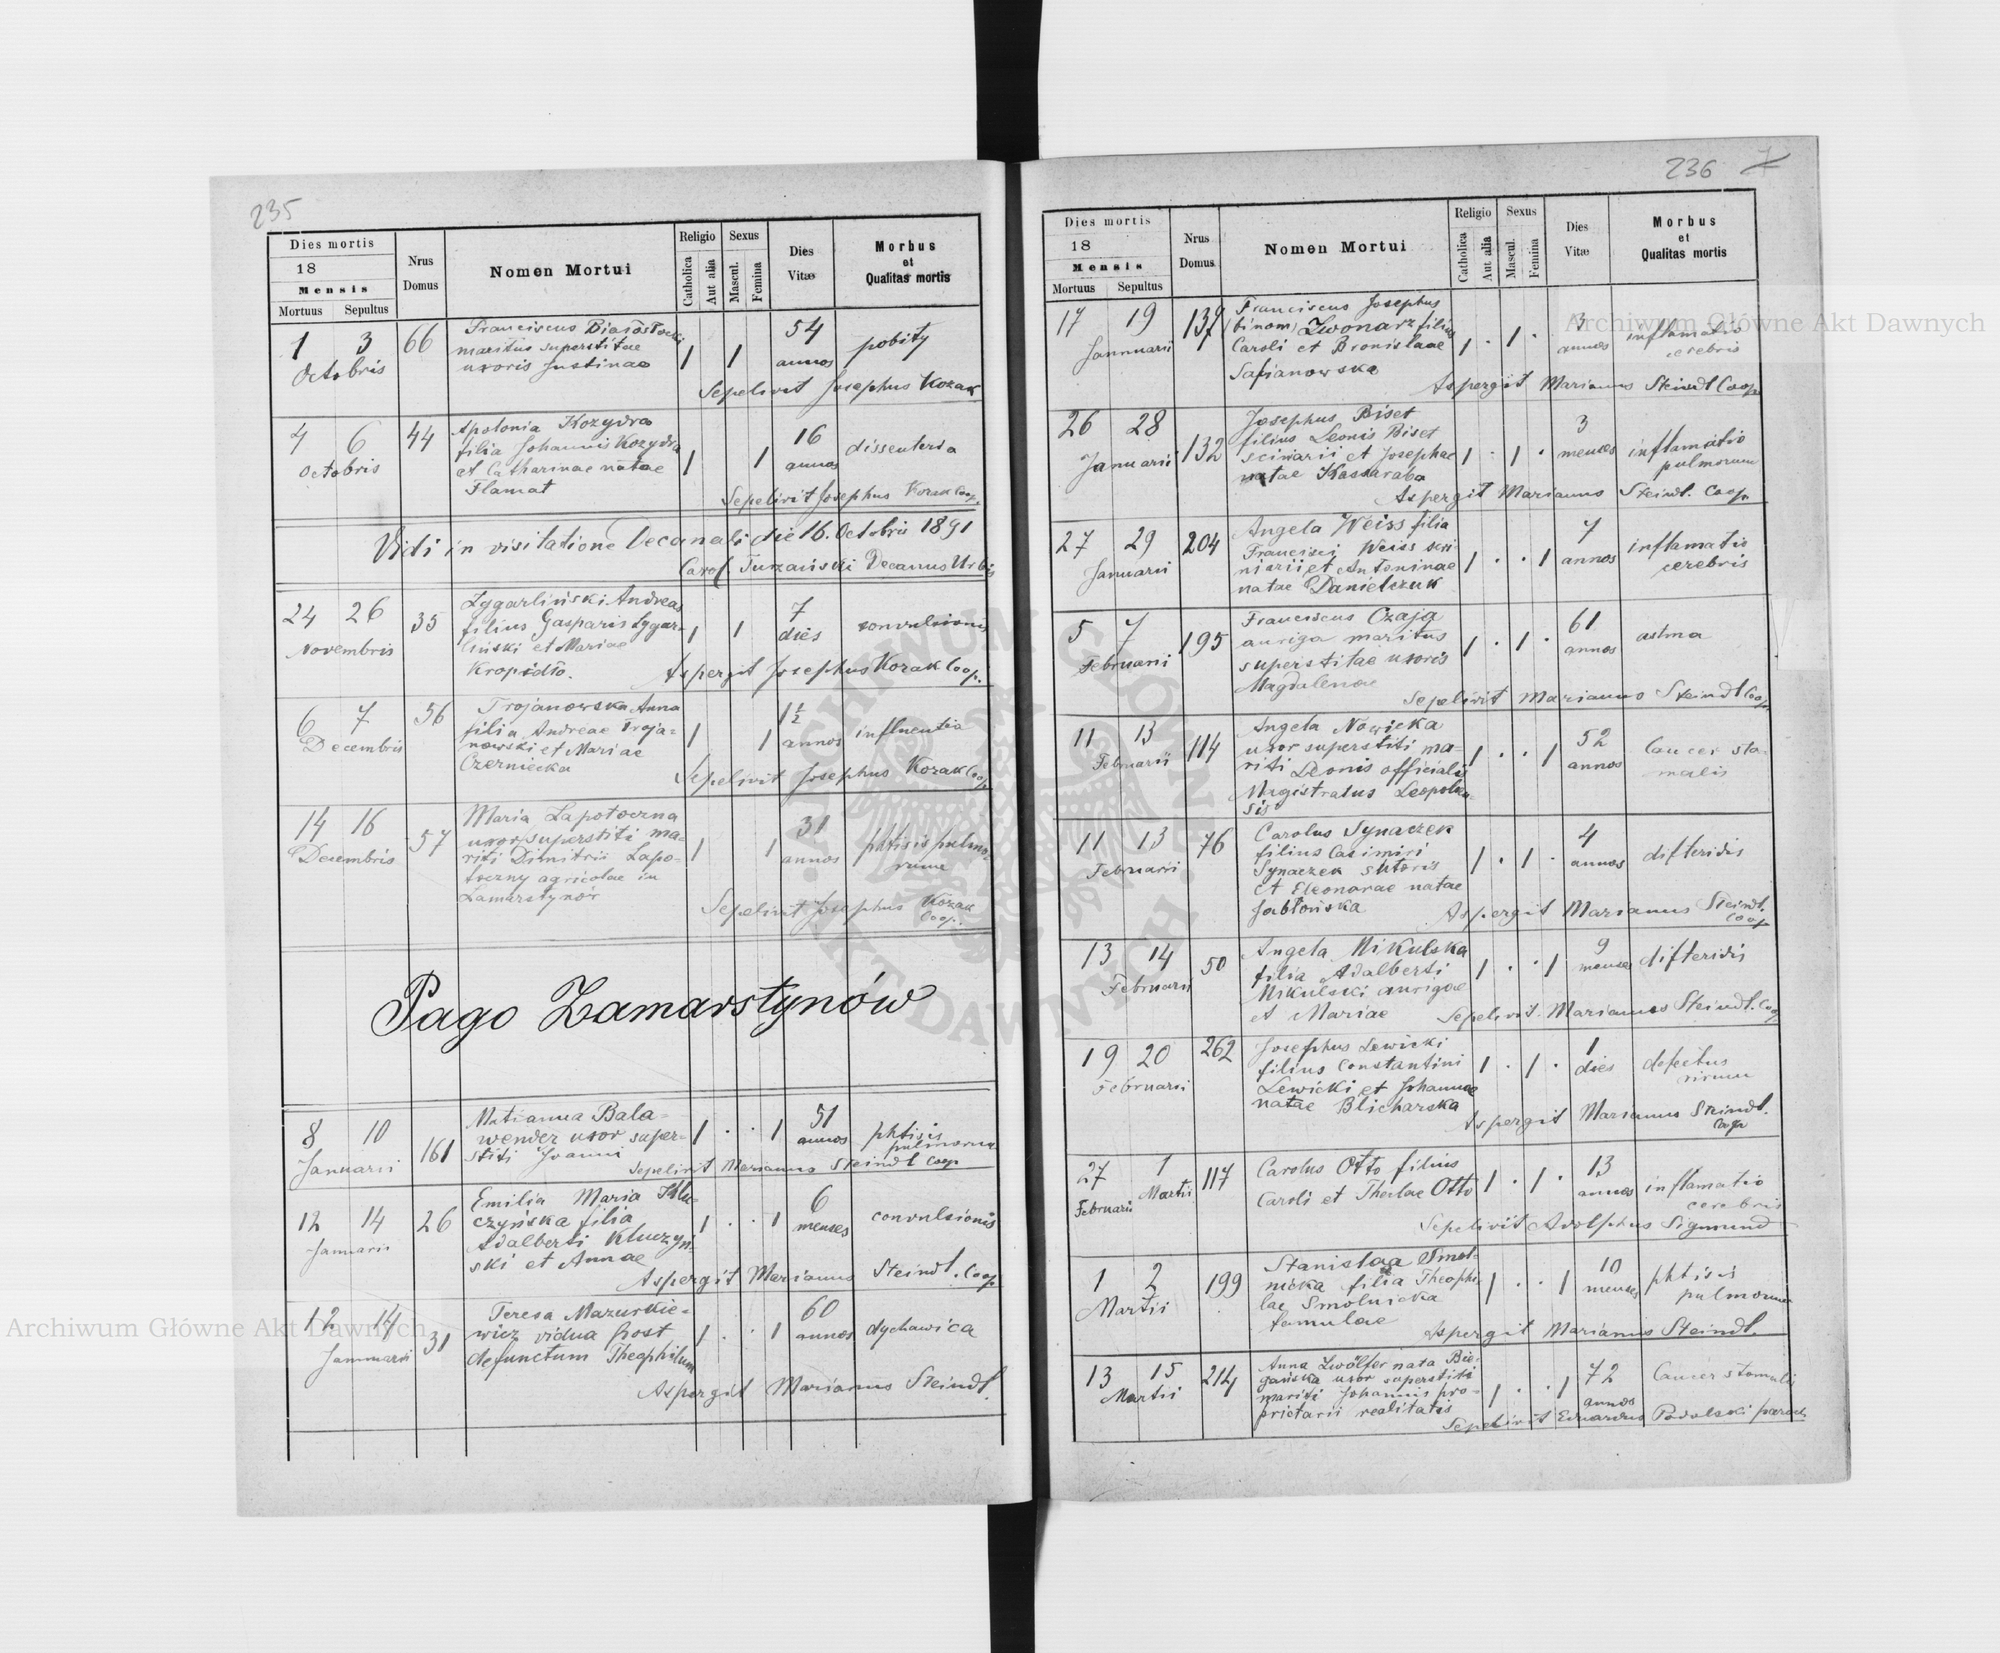 235
Dies mortis
18
Mensis
Mortuus Sepultus
Nrus Domus
Nomen Mortui
Religio
Catholica
Aut alia
Sexus
Mascul.
Femina
Dies Vitæ
Morbus et Qualitas mortis
1 3 Octobris 66
Franciscus Białostocki
maritus superstitae
uxoris Justinae
1 1 54 annos pobity
Sepelivit Josephus Kozak
4 6 Octobris 44
Apolonia Kozydra
filia Johannis Kozydra
et Catharinae natae
Flamat
1 1 16 annos dissenteria
Sepelivit Josephus Kozak Coop.
Vidi in visitatione Decanali die 16. Octobris 1891
Carol. Decanus Urbis
24 26 Novembris 35
Zygarliński Andreas
filius Gasparis Zygar-
liński et Mariae
Kropidło.
1 1 7 dies convulsionis
Aspergit Josephus Kozak Coop.
6 7 Decembris 56
Trojanowska Anna
filia Andreae Troja-
nowski et Mariae
Czerniecka
1 1 1½ annos influentia
Sepelivit Josephus Kozak Coop.
14 16 Decembris 57
Maria Lapotoczna
uxor superstiti ma-
riti Dimitrii Lapo-
toczny agricolae in
Zamarstynór
1 1 31 annos phtisis pulmo-
num
Sepelivit Josephus Kozak
Coop.
Pago Zamarstynów
8 10 Januarii 161
Bala-
wender uxor super-
stiti Joanni
1 . . 1 51 annos phtisis
pulmonum
Sepelivit Marianus Steindl Coop
12 14 Januarii 26
Emilia Maria Klu-
czyńska filia
Adalberti Kluczyń-
ski et Annae
1 . . 1 6 menses convulsionis
Aspergit Marianus Steindl. Coop
12 14 Januarii 31
Teresa Mazurkie-
wicz vidua post
defunctum Theophilum
1 . . 1 60 annos dychawica
Aspergit Marianus Steindl.
236
Dies mortis
18
Mensis
Mortuus Sepultus
Nrus Domus
Nomen Mortui
Religio
Catholica
Aut alia
Sexus
Mascul.
Femina
Dies Vitæ
Morbus et Qualitas mortis
17 19 Januarii 137
Franciscus Josephus
(binom) Zwonarz filius
Caroli et Bronislaae
Safianowska
1 . 1 . 3 annos inflamatio
cerebris
Aspergit Marianus Steindl Coop
26 28 Januarii 132
Josephus Biset
filius Leonis Biset
scriniarii et Josephae
natae Kassaraba
1 . 1 . 3 menses inflamatio
pulmonum
Aspergit Marianus Steindl. Coop.
27 29 Januarii 204
Angela Weiss filia
Francisci Weiss scri-
niarii et Antoninae
natae Danielczuk
1 . . 1 7 annos inflamatio
cerebris
5 7 Februarii 195
Franciscus Czaja
auriga maritus
superstitae uxoris
Magdalenae
1 . 1 . 61 annos astma
Sepelivit Marianus Steindl Coop.
11 13 Februarii 114
Angela Nowicka
uxor superstiti ma-
riti Leonis officialis
Magistratus Leopolien-
sis
1 . . 1 52 annos Cancer sto-
malis
11 13 Februarii 76
Carolus Synaczek
filius Casimiri
Synaczek sutoris
et Eleonorae natae
Jabłońska
1 . 1 . 4 annos difteridis
Aspergit Marianus Steindl.
Coop
13 14 Februarii 50
Angela Mikulska
filia Adalberti
Mikulski aurigae
et Mariae
1 . . 1 9 menses difteridis
Sepelivit Marianus Steindl. Coop
19 20 Februarii 262
Josephus Lewicki
filius Constantini
Lewicki et Johannae
natae Blicharska
1 . 1 . 1 dies defectus
virium
Aspergit Marianus Steindl.
Coop
27 Februarii 1 Martii 117
Carolus Otto filius
Caroli et Theclae Otto
1 . 1 . 13 annos inflamatio
cerebris
Sepelivit Adolphus Sigmund
1 2 Martii 199
Stanislaa Smol-
nicka filia Theophi-
lae Smolnicka
famulae
1 . . 1 10 menses phtisis
pulmonum
Aspergit Marianus Steindl.
13 15 Martii 214
Anna Zwölfer nata Bie-
gańska uxor superstiti
mariti Johannis pro-
prietarii realitatis
1 . . 1 72 annos Cancer stomalis
Sepelivit Eduardus Podolski paroch
Archiwum Główne Akt Dawnych
Archiwum Główne Akt Dawnych
ARCHIWUM GŁÓWNE AKT DAWNYCH